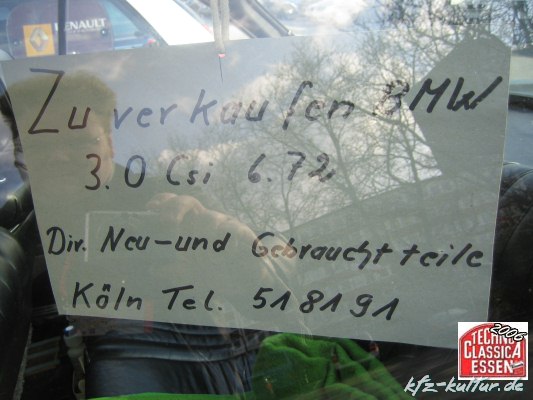 RENAULT
Zu verkaufen BMW
3.0 Csi 6.72
Div. Neu-und Gebrauchtteile
Köln Tel. 518191
2006
TECHNO
CLASSICA
ESSEN
kfz-kultur.de